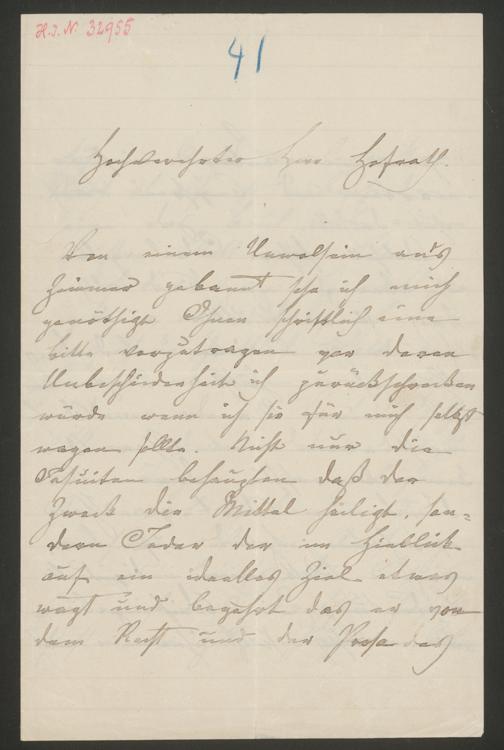 H.I.N. 32955
41
Hochverehrter Herr Hofrath.
Von einem Unwolsein ans
Zimmer gebannt sehe ich mich
genöthigt Ihnen schriftlich eine
bitte vorzutragen vor deren
Unbescheidenheit ich zurückschrecken
würde wenn ich sie für mich selbst
wagen sollte. Nicht nur die
Jesuiten behaupten daß der
Zweck die Mittel heiligt, son=
dern Jeder der im Hinblick
auf ein ideelles Ziel etwas
wagt und begehrt das er von
dem Recht und der das